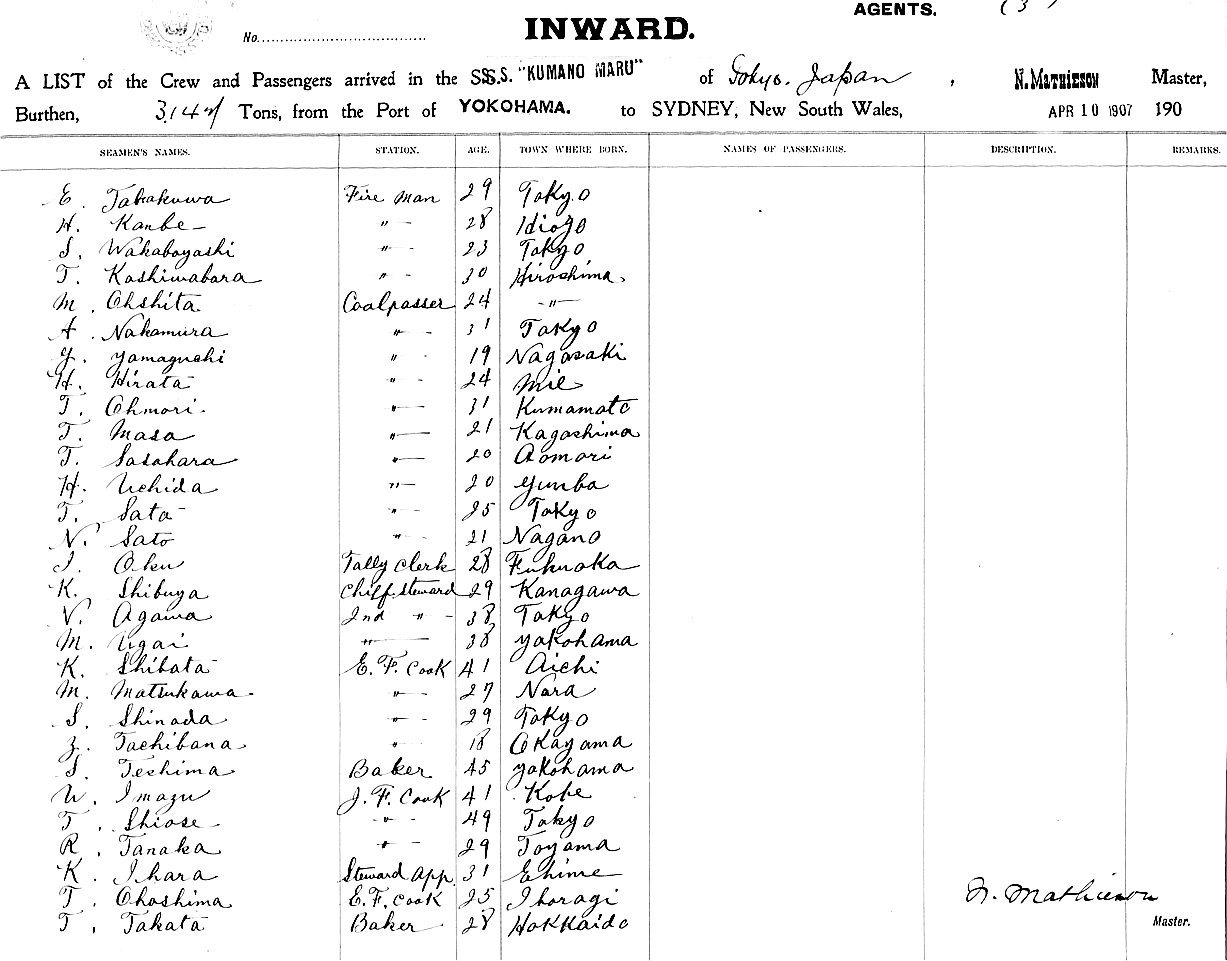 AGENTS. (3)
No.
INWARD.
A LIST of the Crew and Passengers arrived in the S.S. "KUMANO MARU" of Tokyo. Japan, N. MATHIESON Master,
Burthen, 3147 Tons, from the Port of YOKOHAMA. to SYDNEY, New South Wales, APR 10 1907 190
SEAMEN'S NAMES. STATION. AGE. TOWN WHERE BORN. NAMES OF PASSENGERS. DESCRIPTION. REMARKS.
E. Takakuwa Fire man 29 Tokyo
H. Kanbe " 28 Idiogo
S. Wakabayashi " 23 Tokyo
T. Kashiwabara " 30 Hiroshima.
M. Ohshita Coalpasser 24 "
A. Nakamura " 31 Tokyo
Y. Yamaguchi " 19 Nagasaki
H. Hirata " 24 Mie
T. Ohmori. " 31 Kumamoto
T. Masa " 21 Kagoshima
T. Sasahara " 20 Aomori
H. Uchida " 20 Gumba
T. Sata " 25 Tokyo
N. Sato " 21 Nagano
I. Oku Tally Clerk 28 Fukuoka
K. Shibuya Chiff. Steward 29 Kanagawa
N. Agawa 2nd " 38 Tokyo
M. Ugai " 38 Yokohama
K. Shibata E. F. Cook 41 Aichi
M. Matsukawa " 27 Nara
S. Shinada " 29 Tokyo
Z. Tachibana " 18 Okayama
S. Teshima Baker 45 Yokohama
U. Imazu J. F. Cook 41 Kobe
T. Shiose " 49 Tokyo
R. Tanaka " 29 Toyama
K. Ihara Steward App. 31 Ehime
T. Ohoshima E. F. Cook 25 Iboragi
T. Takata Baker 28 Hokkaido
N. Mathieson
Master.